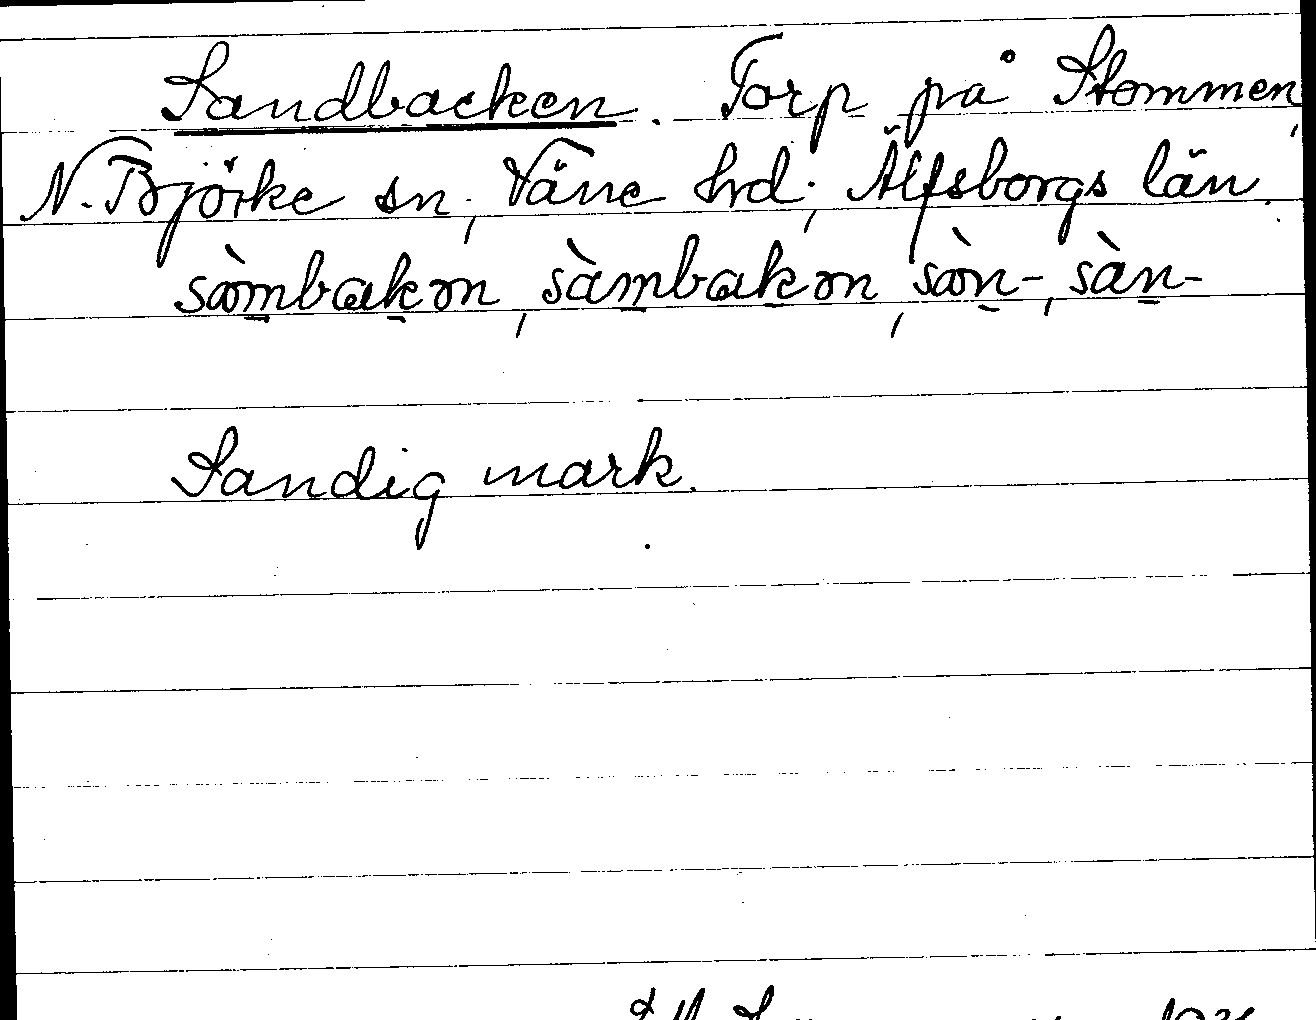 Sandbacken. Torp på Stommen,
N. Björke sn, Väne hd, Älfsborgs län.
sɑ̀mbakən, sàmbakən, sɑ̀n-, sàn-
Sandig mark.